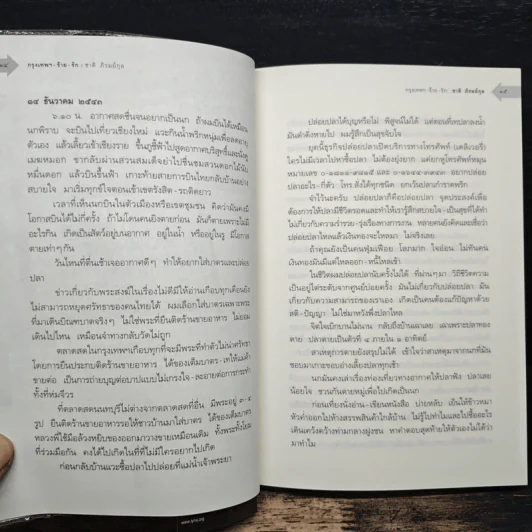 กรุงเทพฯ-ร้าย-รัก : ชาติ ภิรมย์กุล
๑๔ ธันวาคม ๒๕๔๓
๖.๑๐ น. อากาศสดชื่นจนอยากเป็นนก ถ้าผมบินได้เหมือน
นกพิราบ จะบินไปเที่ยวเชียงใหม่ แวะกินน้ำพริกหนุ่มเพื่อลดอายุ
ตัวเอง แล้วเลี้ยวเข้าเชียงราย ขึ้นภูชี้ฟ้าไปสูดอากาศบริสุทธิ์และนั่งดู
เมฆหมอก ขากลับผ่านสวนสมเด็จย่าไปชื่นชมสวนดอกไม้นับ
หมื่นดอก แล้วบินขึ้นฟ้า เกาะท้ายสายการบินไทยกลับบ้านอย่าง
สบายใจ มาเริ่มทุกข์ใจตอนเข้าเขตรังสิต-รถติดยาว
เวลาที่เห็นนกบินในตัวเมืองหรือเขตชุมชน คิดว่ามันคงมี
โอกาสบินได้ไม่กี่ครั้ง ถ้าไม่โดนคนยิงตายก่อน มันก็ตายเพราะไม่มี
อะไรกิน เกิดเป็นสัตว์อยู่บนอากาศ อยู่ในน้ำ หรืออยู่ในรู มีโอกาส
ตายเท่าๆ กัน
วันไหนที่ตื่นเช้าเจออากาศดีๆ ทำให้อยากใส่บาตรและปล่อย
ปลา
ข่าวเกี่ยวกับพระสงฆ์ในเรื่องไม่ดีมีให้อ่านเกือบทุกเดือนยัง
ไม่สามารถหยุดศรัทธาของคนไทยได้ ผมเลือกใส่บาตรเฉพาะพระ
ที่มาเดินบิณฑบาตจริงๆ ไม่ใช่พระที่ยืนติดร้านขายอาหาร ไม่ยอม
เดินไปไหน เหมือนจำทางกลับวัดไม่ถูก
ตลาดสดในกรุงเทพฯเกือบทุกที่จะมีพระที่ทำตัวไม่น่าศรัทธา
โดยการยืนประกบติดร้านขายอาหาร ได้ของเต็มบาตร-เทให้แม่ค้า
ขายต่อ เป็นการถ่ายบุญต่อบาปแบบไม่เกรงใจ-ละอายต่อการกระทำ
ทั้งที่ห่มจีวร
ที่ตลาดสดนนทบุรีไม่ต่างจากตลาดสดที่อื่น มีพระอยู่ ๓-๔
รูป ยืนติดร้านขายอาหารรอให้ชาวบ้านมาใส่บาตร ได้ของเต็มบาตร
หลวงพี่ใช้มือล้วงหยิบของออกมาวางขายเหมือนเดิม ทั้งพระทั้งโยม
ที่ร่วมมือกัน คงได้ไปเกิดในที่ที่ไม่มีใครอยากไปเกิด
ก่อนกลับบ้านแวะซื้อปลาไปปล่อยที่แม่น้ำเจ้าพระยา
กรุงเทพฯ-ร้าย-รัก : ชาติ ภิรมย์กุล
ปล่อยปลาได้บุญหรือไม่ พิสูจน์ไม่ได้ แต่ตอนที่เทปลาลงน้ำ
มันดำดิ่งหายไป ผมรู้สึกเป็นสุขจับใจ
ยุคนี้ธุรกิจปล่อยปลาเปิดบริการทางโทรศัพท์ (เดลิเวอรี่)
ใครไม่มีเวลาไปหาซื้อปลา ไม่ต้องยุ่งยาก แค่ยกหูโทรศัพท์หมุน
ปลาอะไร-กี่ตัว โทร.สั่งได้ทุกชนิด ยกเว้นปลากำราดพริก
จำไว้นะครับ ปลาที่ปล่อยก็คือปลาที่เกือบตาย จุดประสงค์เพื่อ
ต้องการให้ปลามีชีวิตรอดและทำให้เรารู้สึกสบายใจ-เป็นสุขที่ได้ทำ
ไม่เกี่ยวกับความร่ำรวย-รุ่งเรืองทางการงาน หลายคนยังคิดและเชื่อว่า
ปล่อยปลาไหลแล้วเงินทองจะไหลมา ไม่จริงเลย
ถ้าคุณยังเป็นคนฟุ่มเฟือย โลภมาก ใจอ่อน ไม่ทันคน
เงินทองมันมีแต่ไหลออก-หนี้ไหลเข้า
ในชีวิตผมปล่อยปลานับครั้งไม่ได้ ที่ผ่านๆมา วิถีชีวิตความ
เป็นอยู่ไต่ระดับจากศูนย์บ่อยครั้ง มันไม่เกี่ยวกับการปล่อยปลา มัน
เกี่ยวกับความสามารถของเราเอง เกิดเป็นคนต้องแก้ปัญหาด้วย
สติ-ปัญญา ไม่ใช่มาหวังพึ่งปลาไหล
จิตใจเบิกบานไม่นาน กลับถึงบ้านเฉาเลย เฉาเพราะปลาทอง
ตาย ปลาตายเป็นตัวที่ ๔ ภายใน ๑ อาทิตย์
สาเหตุการตายยังสรุปไม่ได้ เข้าใจว่าสาเหตุมาจากนกที่มัน
ชอบมาเกาะขอบอ่างเลี้ยงปลาทุกเช้า
นกมันคงเล่าเรื่องท่องเที่ยวทางอากาศให้ปลาฟัง ปลาเลย
น้อยใจ ชวนกันตายหมู่เพื่อไปเกิดเป็นนก
ก่อนเที่ยงนั่งอ่าน-เขียนหนังสือ บ่ายหลับ เย็นไปช้าวหมา
หัวค่ำออกไปห้างสรรพสินค้าใกล้บ้าน ไม่รู้ไปทำไมและไปซื้ออะไร
เดินเคว้งคว้างท่ามกลางฝูงชน หาคำตอบสุดท้ายให้ตัวเองไม่ได้ว่า
มาทำไม